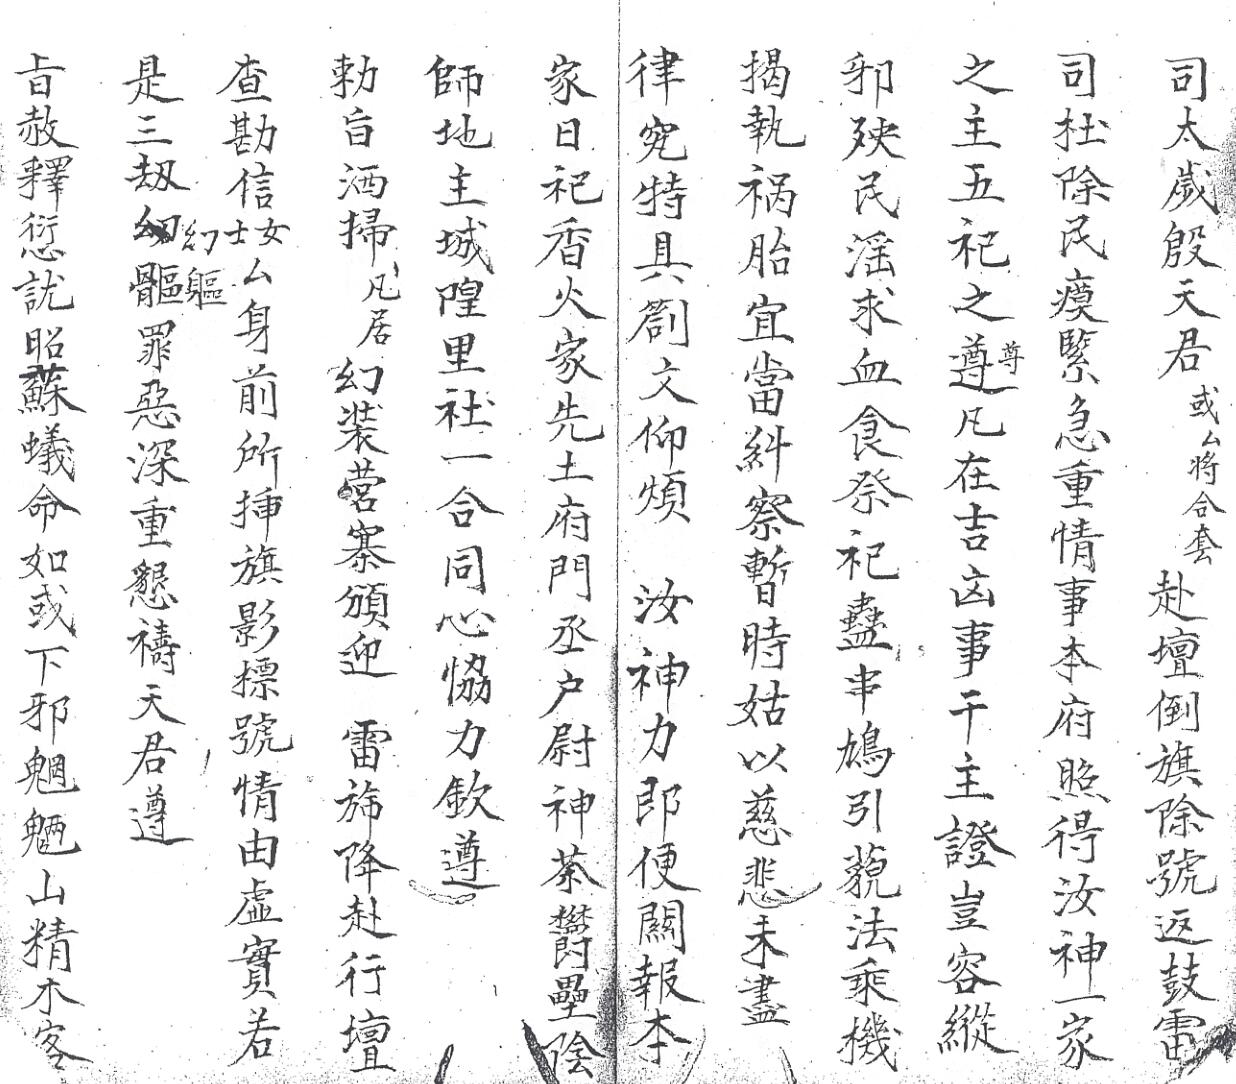 司太歲殷天君或厶將合套赴壇倒旗除號返鼓雷
司杜除民瘼緊急重情事本府照得汝神一家
之主五祀之遵尊凡在吉凶事干主證豈容縱
邪殃民滛求血食祭祀蠱串鳩引藐法乘機
揭執祸胎宜當糾察暫時姑以慈悲未盡
律究特具劄文仰煩 汝神力即便關報本
家日祀香火家先土府門丞户尉神荼欝壘陰
師地主城隍里社一合同心恊力欽遵
勅旨洒掃凡居幻装营寨頒迎 雷斾降赴行壇
查勘信士女厶身前所揷旗影標號情由虛實若
是三刼幻軀幻軀罪惡深重懇禱天君遵
旨赦釋愆訧昭蘇蟻命如或下邪魍魎山精木客